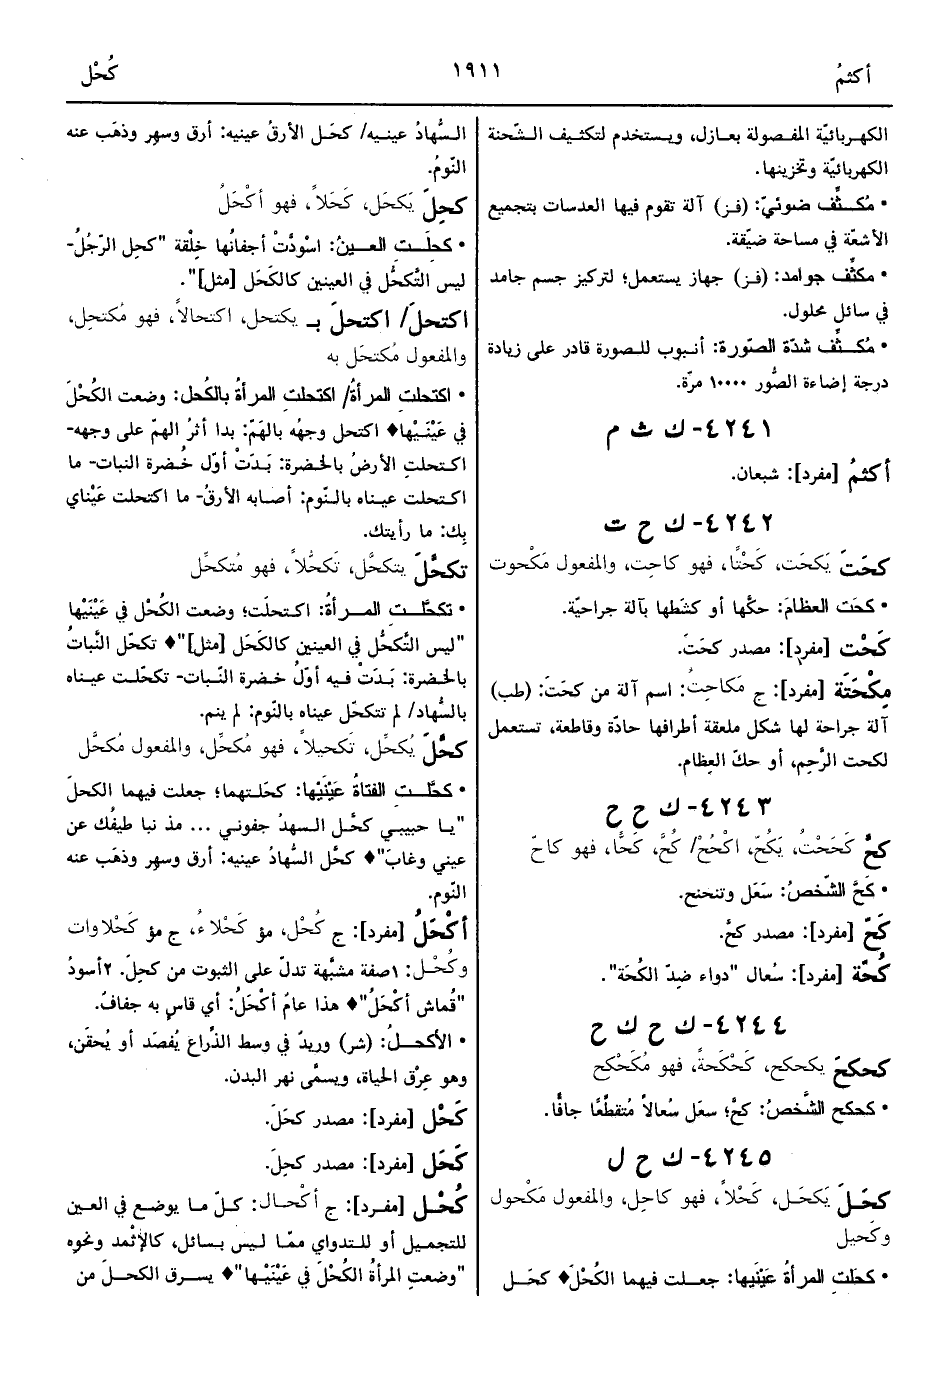 أكثمُ
١٩١١
كُحْل
الكهربائيّة المفصولة بعازل، ويستخدم لتكثيف الشّحنة
الكهربائيّة وتخزينها.
• مُكثِّف ضوئيّ: (فز) آلة تقوم فيها العدسات بتجميع
الأشعّة في مساحة ضيّقة.
• مكثِّف جوامد: (فز) جهاز يستعمل؛ لتركيز جسم جامد
في سائل محلول.
• مُكثِّف شدّة الصّورة: أنبوب للصورة قادر على زيادة
درجة إضاءة الصُّور ١٠٠٠٠ مرّة.
٤٢٤١- ك ث م
أكثمُ [مفرد]: شبعان.
٤٢٤٢- ك ح ت
كحَتَ يَكحَت، كَحْتًا، فهو كاحِت، والمفعول مَكْحوت
• كحَت العظامَ: حكَّها أو كشَطها بآلة جراحيّة.
كَحْت [مفرد]: مصدر كحَتَ.
مِكْحَتَة [مفرد]: ج مَكاحِتُ: اسم آلة من كحَتَ: (طب)
آلة جراحة لها شكل ملعقة أطرافها حادّة وقاطعة، تستعمل
لكحت الرَّحِم، أو حكّ العِظام.
٤٢٤٣- ك ح ح
كحَّ كَحَحْتُ، يَكُحّ، اكْحُحْ/ كُحَّ، كَحًّا، فهو كاحّ
• كَحَّ الشَّخصُ: سَعَل وتنحنح.
كَحّ [مفرد]: مصدر كحَّ.
كُحّة [مفرد]: سُعال "دواء ضدّ الكُحّة".
٤٢٤٤- ك ح ك ح
كحكحَ يكحكح، كَحْكَحةً، فهو مُكَحْكِح
• كحكح الشَّخصُ: كحَّ؛ سعَل سُعالاً مُتقطِّعًا جافًّا.
٤٢٤٥- ك ح ل
كحَلَ يَكحَل، كَحْلاً، فهو كاحِل، والمفعول مَكْحول
وكَحيل
• كحَلتِ المرأةُ عَيْنَيها: جعلت فيهما الكُحْلَ♦ كحَل
السُّهادُ عينيه/ كحَل الأرقُ عينيه: أرق وسهِر وذهَب عنه
النّومُ.
كحِلَ يَكحَل، كَحَلاً، فهو أكْحَلُ
• كحِلَت العينُ: اسْوَدَّتْ أجفانُها خِلْقة "كحِل الرّجُلُ-
ليس التَّكحُّل في العينين كالكَحَل [مثل]".
اكتحلَ/ اكتحلَ بـ يكتحل، اكتحالاً، فهو مُكتحِل،
والمفعول مُكتحَل به
• اكتحلت المرأةُ/ اكتحلتِ المرأةُ بالكُحل: وضعت الكُحْلَ
في عَيْنَيْها♦ اكتحل وجهُه بالهَمّ: بدا أثرُ الهمّ على وجهه-
اكتحلتِ الأرضُ بالخضرة: بَدَتْ أوّل خُضرة النبات- ما
اكتحلت عيناه بالنّوم: أصابه الأرقُ- ما اكتحلت عَيْناي
بِك: ما رأيتك.
تكحَّلَ يتكحَّل، تَكحُّلاً، فهو مُتكحِّل
• تكحَّلتِ المرأةُ: اكتحلَت؛ وضعت الكُحْل في عَيْنَيْها
"ليس التَّكحُّل في العينين كالكَحَل [مثل]"♦ تكحّل النَّباتُ
بالخضرة: بَدَتْ فيه أوّلُ خضرة النَّبات- تكحّلت عيناه
بالسُّهاد/ لم تتكحّل عيناه بالنّوم: لم ينم.
كحَّلَ يُكحِّل، تَكحيلاً، فهو مُكحِّل، والمفعول مُكحَّل
• كحَّلت الفتاةُ عَيْنَيْها: كحَلتهما؛ جعلت فيهما الكحلَ
"يا حبيبي كحَّل السهدُ جفوني ... مذ نبا طيفُك عن
عيني وغابَ"♦ كحَّل السُّهادُ عينيه: أرق وسهِر وذهَب عنه
النّوم.
أكْحَلُ [مفرد]: ج كُحْل، مؤ كَحْلاءُ، ج مؤ كَحْلاوات
وكُحْل: ١صفة مشبَّهة تدلّ على الثبوت من كحِلَ. ٢أسودُ
"قُماش أكْحَلُ"♦ هذا عامٌ أكْحَلُ: أي قاسٍ به جفافٌ.
• الأكحلُ: (شر) وريدٌ في وسط الذِّراع يُفصَد أو يُحقَن،
وهو عِرْق الحياة، ويسمَّى نهر البدن.
كَحْل [مفرد]: مصدر كحَلَ.
كَحَل [مفرد]: مصدر كحِلَ.
كُحْل [مفرد]: ج أكْحال: كلّ ما يوضع في العين
للتجميل أو للتداوي ممّا ليس بسائل، كالإثْمد ونحوه
"وضعتِ المرأةُ الكُحْلَ في عَيْنَيْها"♦ يسرق الكحلَ من